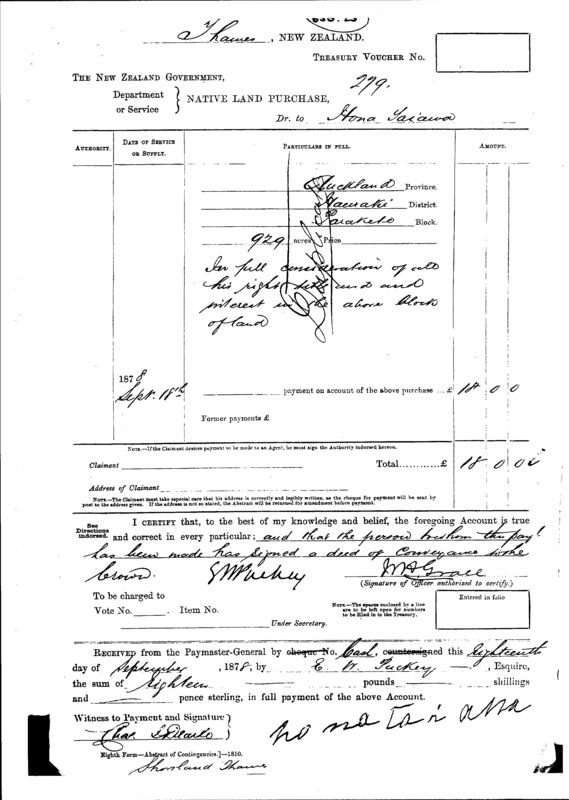 Thames, NEW ZEALAND.
TREASURY VOUCHER NO.
THE NEW ZEALAND GOVERNMENT,
279.
Department
or Service } NATIVE LAND PURCHASE,
Dr. to Hona Taiawa
AUTHORITY. DATE OF SERVICE OR SUPPLY. PARTICULARS IN FULL. AMOUNT.
Auckland Province.
Hauraki District.
Block.
929 acres Price
In full consideration of all
his right title and and
interest in the above block
of land
1878
Sept. 18th payment on account of the above purchase ... £ 18 0 0
Former payments £
NOTE.—If the Claimant desires payment to be made to an Agent, he must sign the Authority indorsed hereon.
Claimant Total............£ 18 0 0
Address of Claimant
NOTE.—The Claimant must take special care that his address is correctly and legibly written, as the cheque for payment will be sent by
post to the address given. If the address is not so stated, the Abstract will be returned for amendment before payment.
See Directions indorsed.
I CERTIFY that, to the best of my knowledge and belief, the foregoing Account is true
and correct in every particular; and that the person to whom the pay!
has been made has signed a deed of Conveyance to the
Crown. EWPuckey
(Signature of Officer authorized to certify.)
To be charged to
Vote No. Item No.
NOTE.—The spaces enclosed by a line are to be left open for numbers to be filled in in the Treasury.
Entered in folio
Under Secretary.
RECEIVED from the Paymaster-General by cheque No. Cash, countersigned this Eighteenth
day of September, 1878, by E. W. Puckey, Esquire,
the sum of Eighteen pounds shillings
and pence sterling, in full payment of the above Account.
Witness to Payment and Signature
hona taiawa
Eighth Form—Abstract of Contingencies.]—1810.
Shortland Thames